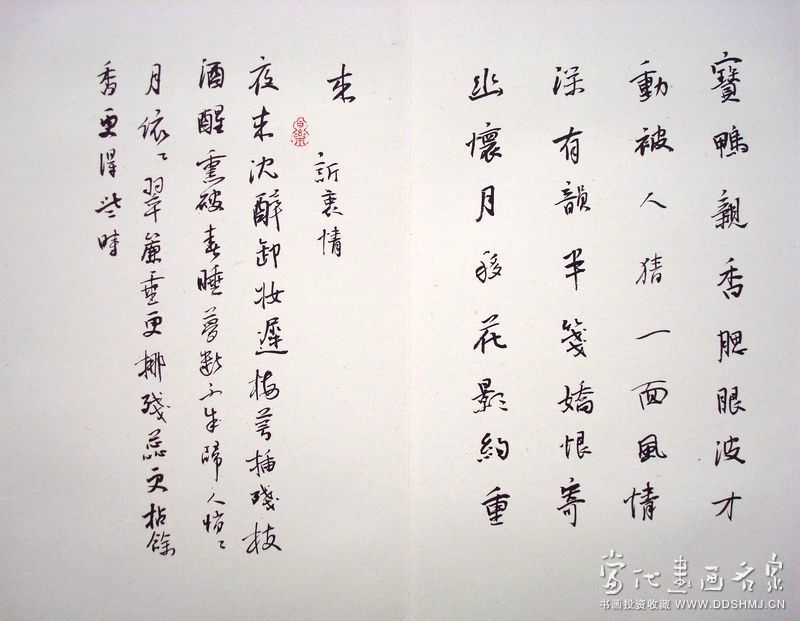 寶鴨親香腮眼波才
動被人猜一面風情
深有韻半箋嬌恨寄
幽懷月移花影約重
来
訴衷情
夜来沈醉卸妝遲梅萼插殘枝
酒醒熏破春睡夢断不成歸人悄〻
月依〻翠簾垂更挪殘蕊更拈餘
香更得些時
當代書画名家
书画投资收藏 WWW.DDSHMJ.CN